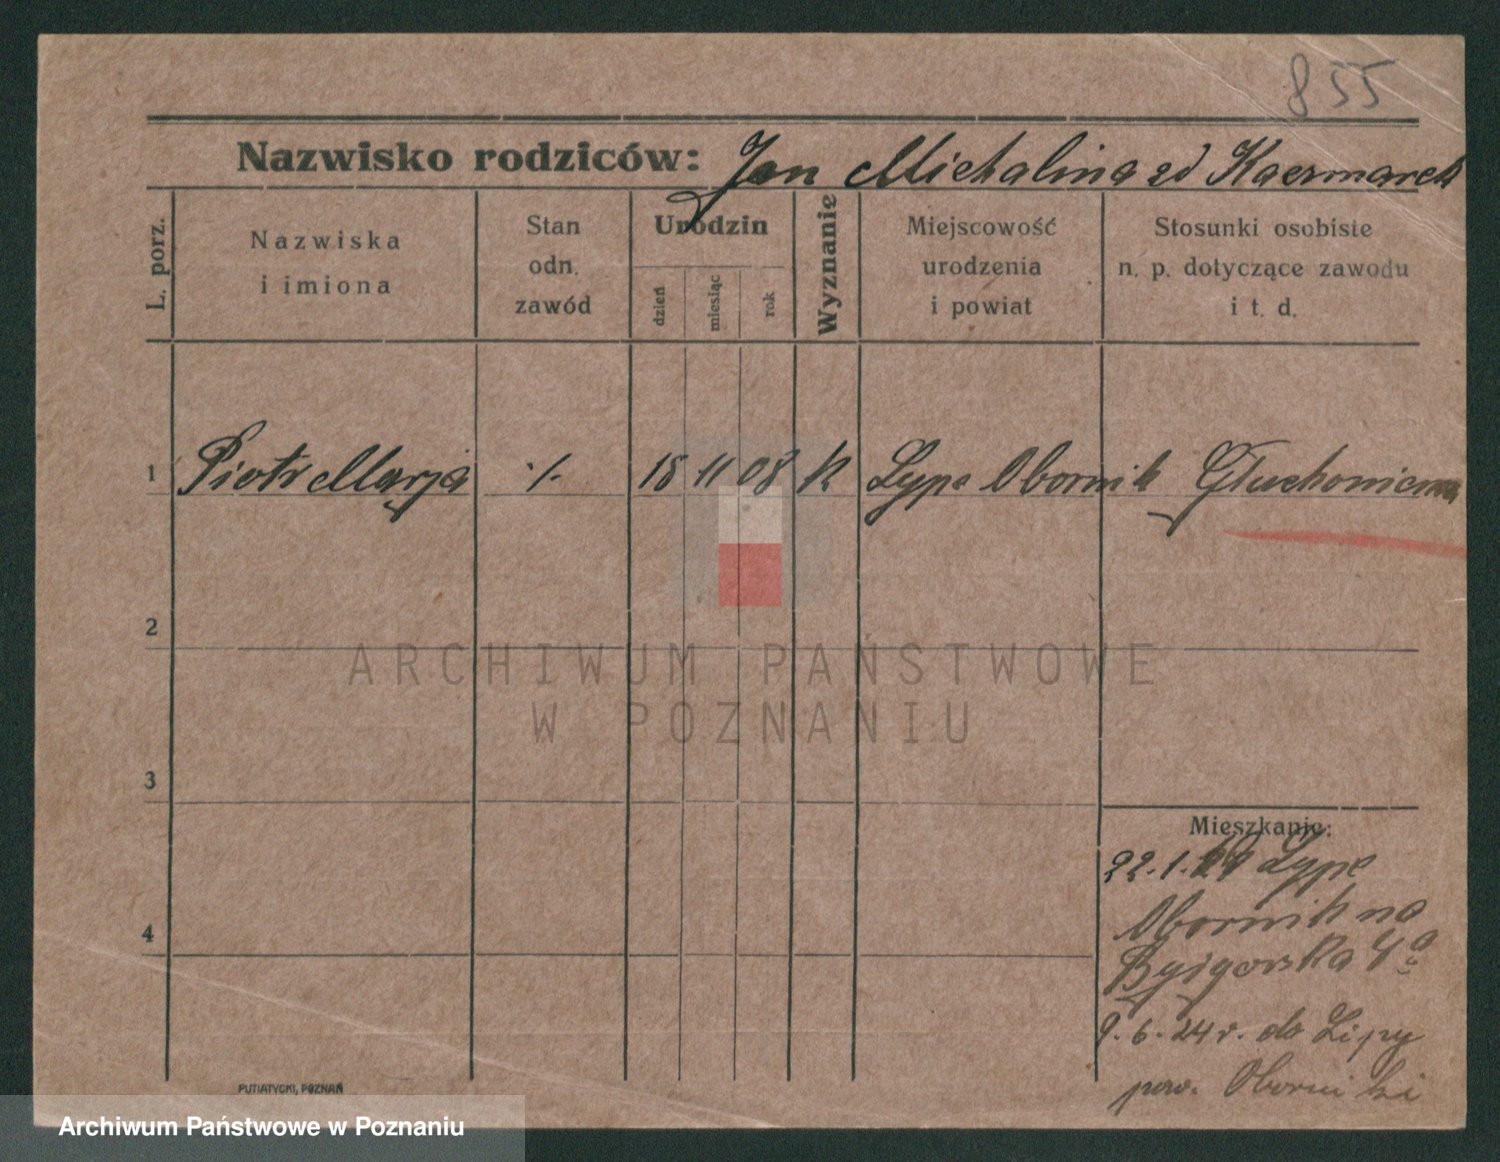 855
Nazwisko rodziców: Jan Michalina zd Kaczmarek
L. porz.
Nazwiska
i imiona
Stan
odn.
zawód
Urodzin
dzień
miesiąc
rok
Wyznanie
Miejscowość
urodzenia
i powiat
Stosunki osobiste
n. p. dotyczące zawodu
i t. d.
1 Piotr Marja ./. 18 11 08 K Lypa Obornik
2
3
4
ARCHIWUM PAŃSTWOWE
W POZNANIU
Mieszkanie:
22.1. Lypa
Obornik na
9.6.24 r. do Lipy
pow. Oborniki
PUTIATYCKI, POZNAŃ
Archiwum Państwowe w Poznaniu